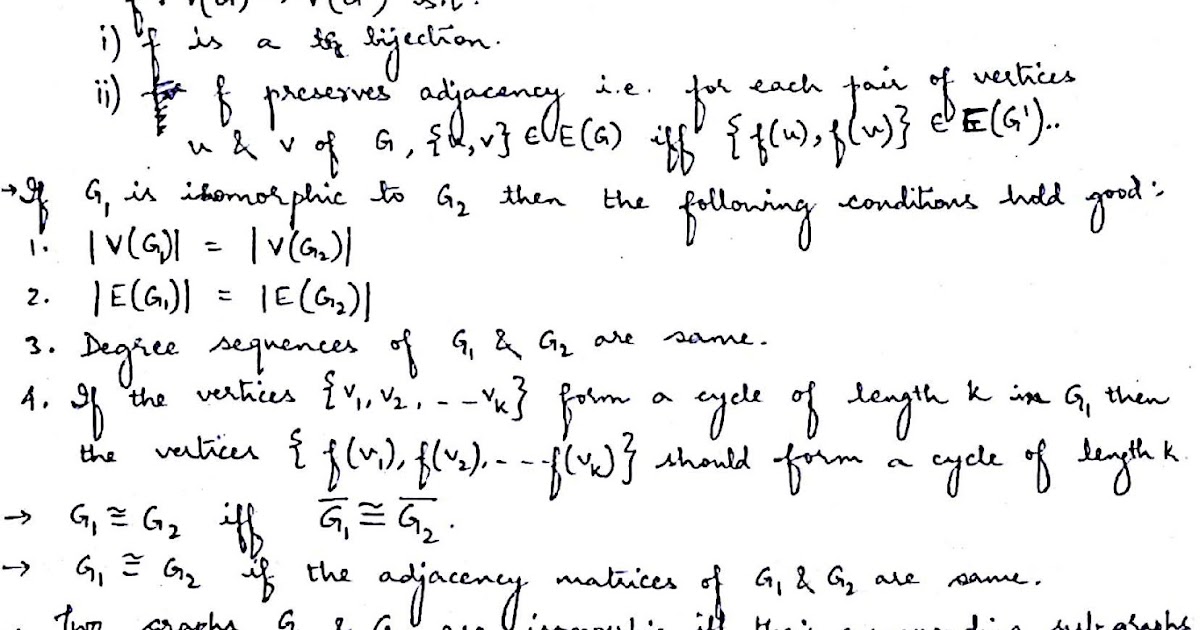 i) f is a bijection.
ii) f preserves adjacency i.e. for each pair of vertices
u & v of G, {u,v} ∈ E(G) iff {f(u), f(v)} ∈ E(G')..
→ If G₁ is isomorphic to G₂ then the following conditions hold good:
1. |V(G₁)| = |V(G₂)|
2. |E(G₁)| = |E(G₂)|
3. Degree sequences of G₁ & G₂ are same.
4. If the vertices {v₁, v₂, - - vₖ} form a cycle of length k in G₁ then
the vertices { f(v₁), f(v₂), - - f(vₖ)} should form a cycle of length k.
→ G₁ ≅ G₂ iff G̅₁ ≅ G̅₂.
→ G₁ ≅ G₂ if the adjacency matrices of G₁ & G₂ are same.
Two graphs G & G are iff their subgraphs